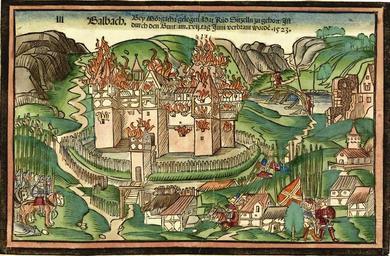 III Balbach. Bey Mörgethei gelegen. Hat Rud Sützeln zu gehort. Ist
durch den Bunt am. xvij. tag Juni verbrant worde. 1523.